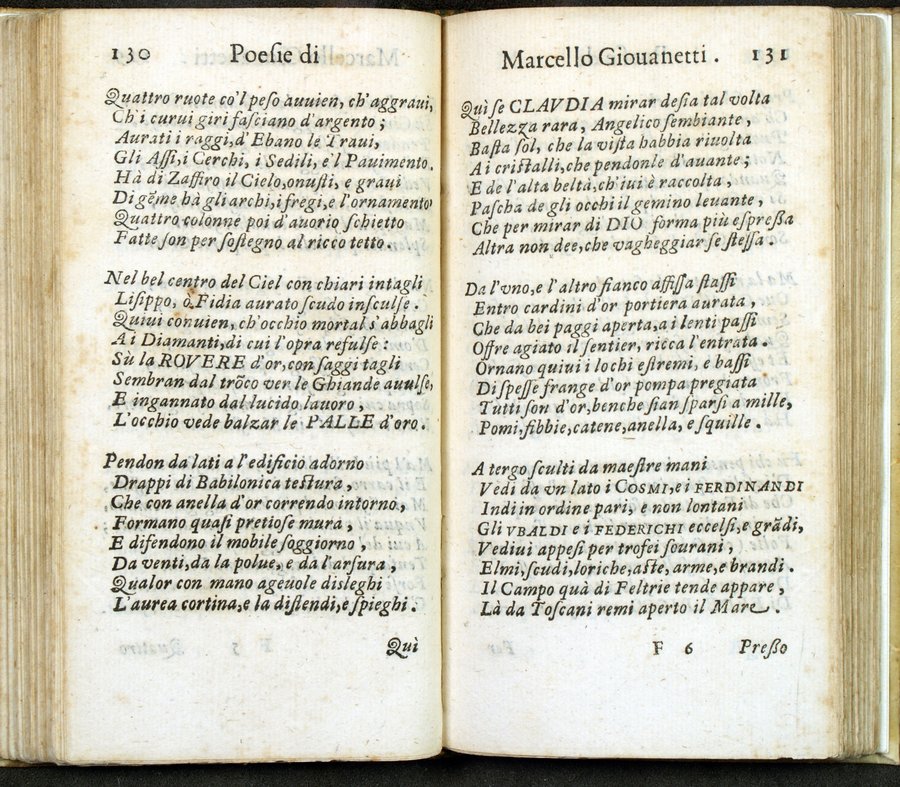 130 Poesie di
Quattro ruote co'l peso auuien, ch'aggraui,
Ch'i curui giri fasciano d'argento;
Aurati i raggi, d'Ebano le Traui,
Gli Assi, i Cerchi, i Sedili, e'l Pauimento.
Hà di Zaffiro il Cielo, onusti, e graui
Di gẽme hà gli archi, i fregi, e l'ornamento
Quattro colonne poi d'auorio schietto
Fatte son per sostegno al ricco tetto.
Nel bel centro del Ciel con chiari intagli
Lisippo, ò Fidia aurato scudo insculse.
Quiui conuien, ch'occhio mortal s'abbagli
A i Diamanti, di cui l'opra refulse:
Sù la ROVERE d'or, con saggi tagli
Sembran dal trõco ver le Ghiande auulse,
E ingannato dal lucido lauoro,
L'occhio vede balzar le PALLE d'oro.
Pendon da lati a l'edificio adorno
Drappi di Babilonica testura,
Che con anella d'or correndo intorno,
Formano quasi pretiose mura,
E difendono il mobile soggiorno,
Da venti, da la polue, e da l'arsura,
Qualor con mano ageuole disleghi
L'aurea cortina, e la distendi, e spieghi.
Quì
Marcello Giouanetti. 131
Quì se CLAVDIA mirar desia tal volta
Bellezza rara, Angelico sembiante,
Basta sol, che la vista habbia riuolta
A i cristalli, che pendonle d'auante;
E de l'alta beltà, ch'iui è raccolta,
Pascha de gli occhi il gemino leuante,
Che per mirar di DIO forma più espressa
Altra non dee, che vagheggiar se stessa.
Da l'vno, e l'altro fianco affissa stassi
Entro cardini d'or portiera aurata,
Che da bei paggi aperta, a i lenti passi
Offre agiato il sentier, ricca l'entrata.
Ornano quiui i lochi estremi, e bassi
Di spesse frange d'or pompa pregiata
Tutti son d'or, benche sian sparsi a mille,
Pomi, fibbie, catene, anella, e squille.
A tergo sculti da maestre mani
Vedi da vn lato i COSMI, e i FERDINANDI
Indi in ordine pari, e non lontani
Gli VBALDI e i FEDERICHI eccelsi, e grãdi,
Vediui appesi per trofei sourani,
Elmi, scudi, loriche, aste, arme, e brandi.
Il Campo quà di Feltrie tende appare,
Là da Toscani remi aperto il Mare.
F 6 Presso